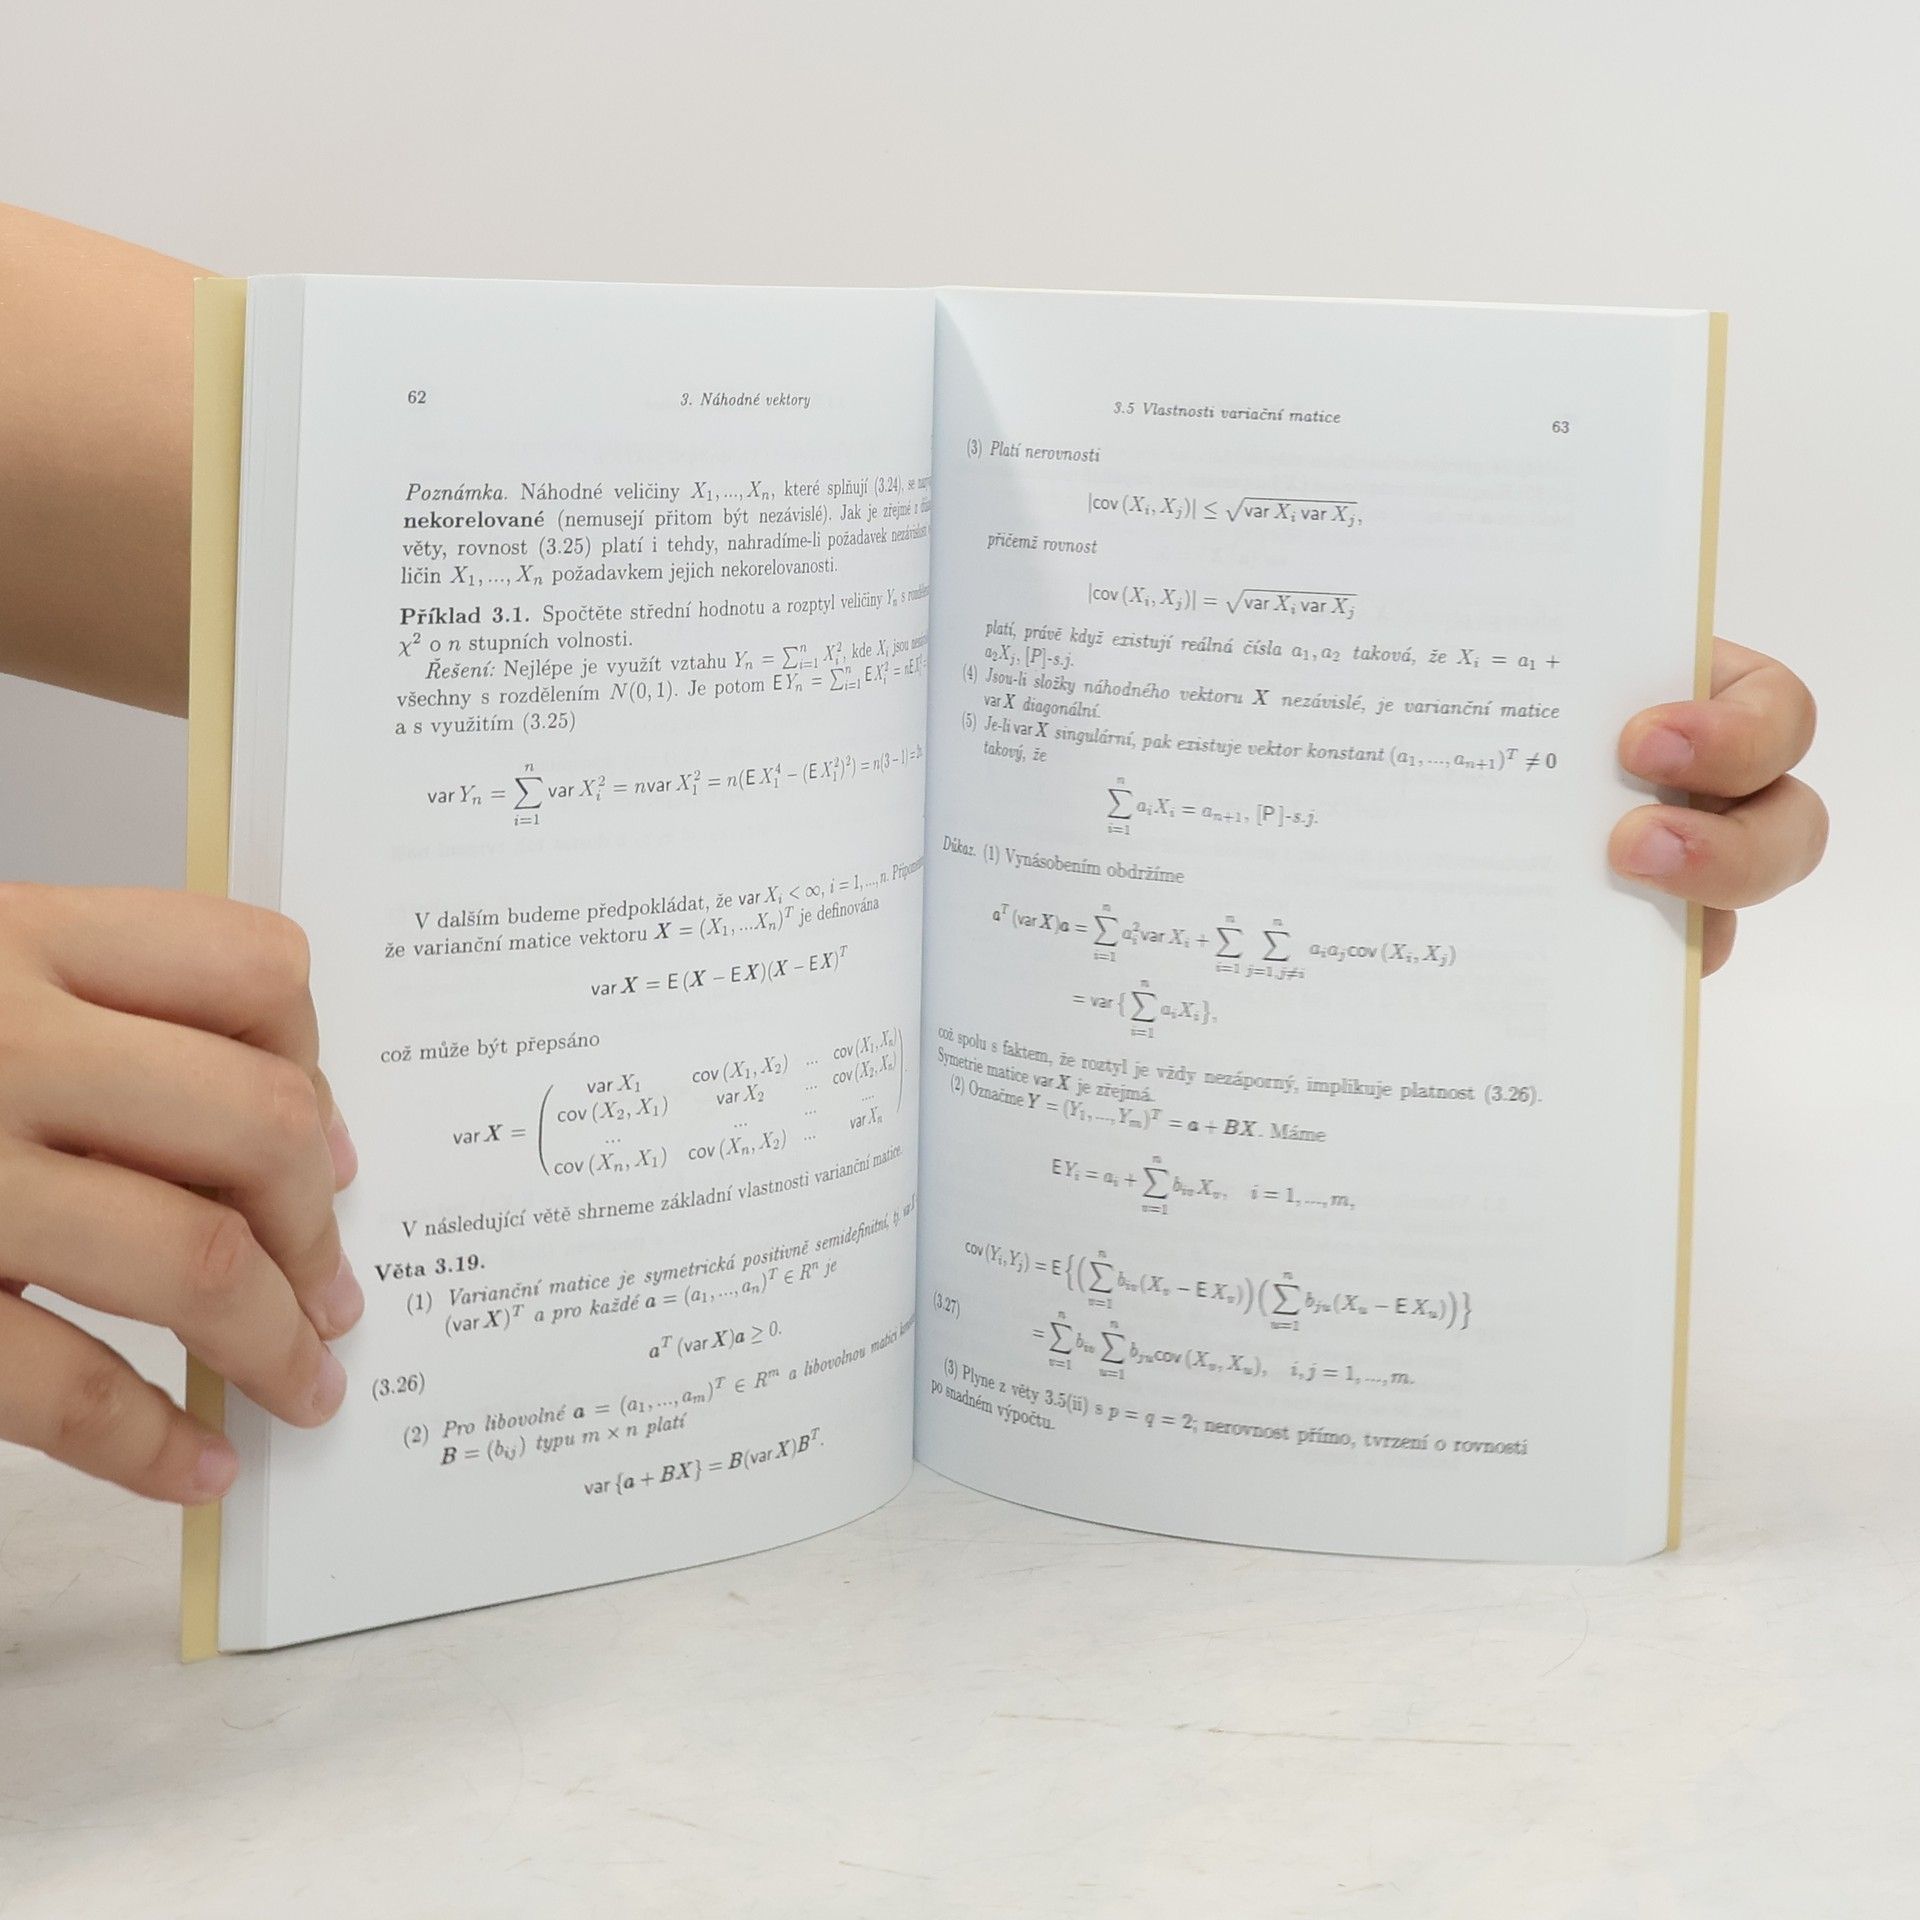 62
3. Náhodné vektory
Poznámka. Náhodné veličiny X₁,...,Xₙ, které splňují (3.24), se
nekorelované (nemusejí přitom být nezávislé). Jak je zřejmé z
věty, rovnost (3.25) platí i tehdy, nahradíme-li požadavek
ličin X₁,...,Xₙ požadavkem jejich nekorelovanosti.
Příklad 3.1. Spočtěte střední hodnotu a rozptyl veličiny Yₙ s
χ² o n stupních volnosti.
Řešení: Nejlépe je využít vztahu Yₙ = ∑ᵢ₌₁ⁿ Xᵢ², kde Xᵢ jsou
všechny s rozdělením N(0, 1). Je potom E Yₙ = ∑ᵢ₌₁ⁿ E Xᵢ² = nE
a s využitím (3.25)
var Yₙ = ∑ᵢ₌₁ⁿ var Xᵢ² = nvar X₁² = n(E X₁⁴ − (E X₁²)²) = n(3 − 1) =
V dalším budeme předpokládat, že var Xᵢ < ∞, i = 1,...,n.
že varianční matice vektoru X = (X₁,...Xₙ)ᵀ je definována
var X = E (X − EX)(X − EX)ᵀ
což může být přepsáno
var X₁ cov (X₁, X₂) ... cov (X₁, Xₙ)
cov (X₂, X₁) var X₂ ... cov (X₂, Xₙ)
var X =
... ... ... ....
cov (Xₙ, X₁) cov (Xₙ, X₂) ... var Xₙ
V následující větě shrneme základní vlastnosti varianční matice.
Věta 3.19.
(1) Varianční matice je symetrická positivně semidefinitní, tj.
(var X)ᵀ a pro každé a = (a₁,...,aₙ)ᵀ ∈ Rⁿ je
(3.26)
aᵀ (var X)a ≥ 0.
(2) Pro libovolné a = (a₁,...,aₘ)ᵀ ∈ Rᵐ a libovolnou matici
B = (bᵢⱼ) typu m × n platí
var {a + BX} = B(var X)Bᵀ.
3.5 Vlastnosti variační matice
63
(3) Platí nerovnosti
|cov (Xᵢ, Xⱼ)| ≤ √(var Xᵢ var Xⱼ),
přičemž rovnost
|cov (Xᵢ, Xⱼ)| = √(var Xᵢ var Xⱼ)
platí, právě když existují reálná čísla a₁, a₂ taková, že Xᵢ = a₁ +
a₂Xⱼ, [P]-s.j.
(4) Jsou-li složky náhodného vektoru X nezávislé, je varianční matice
var X diagonální.
(5) Je-li var X singulární, pak existuje vektor konstant (a₁,...,aₙ₊₁)ᵀ ≠ 0
takový, že
∑ᵢ₌₁ⁿ aᵢXᵢ = aₙ₊₁, [P]-s.j.
Důkaz. (1) Vynásobením obdržíme
aᵀ (var X)a = ∑ᵢ₌₁ⁿ aᵢ²var Xᵢ + ∑ᵢ₌₁ⁿ ∑ⱼ₌₁,ⱼ≠ᵢⁿ aᵢaⱼcov (Xᵢ, Xⱼ)
= var { ∑ᵢ₌₁ⁿ aᵢXᵢ},
což spolu s faktem, že roztyl je vždy nezáporný, implikuje platnost (3.26).
Symetrie matice var X je zřejmá.
(2) Označme Y = (Y₁,...,Yₘ)ᵀ = a + BX. Máme
E Yᵢ = aᵢ + ∑ᵥ₌₁ⁿ bᵢᵥXᵥ, i = 1,...,m,
cov (Yᵢ, Yⱼ) = E{(∑ᵥ₌₁ⁿ bᵢᵥ(Xᵥ − E Xᵥ))(∑ᵤ₌₁ⁿ bⱼᵤ(Xᵤ − E Xᵤ))}
(3.27)
= ∑ᵥ₌₁ⁿ bᵢᵥ ∑ᵤ₌₁ⁿ bⱼᵤcov (Xᵥ, Xᵤ), i, j = 1,...,m.
(3) Plyne z věty 3.5(ii) s p = q = 2; nerovnost přímo, tvrzení o rovnosti
po snadném výpočtu.